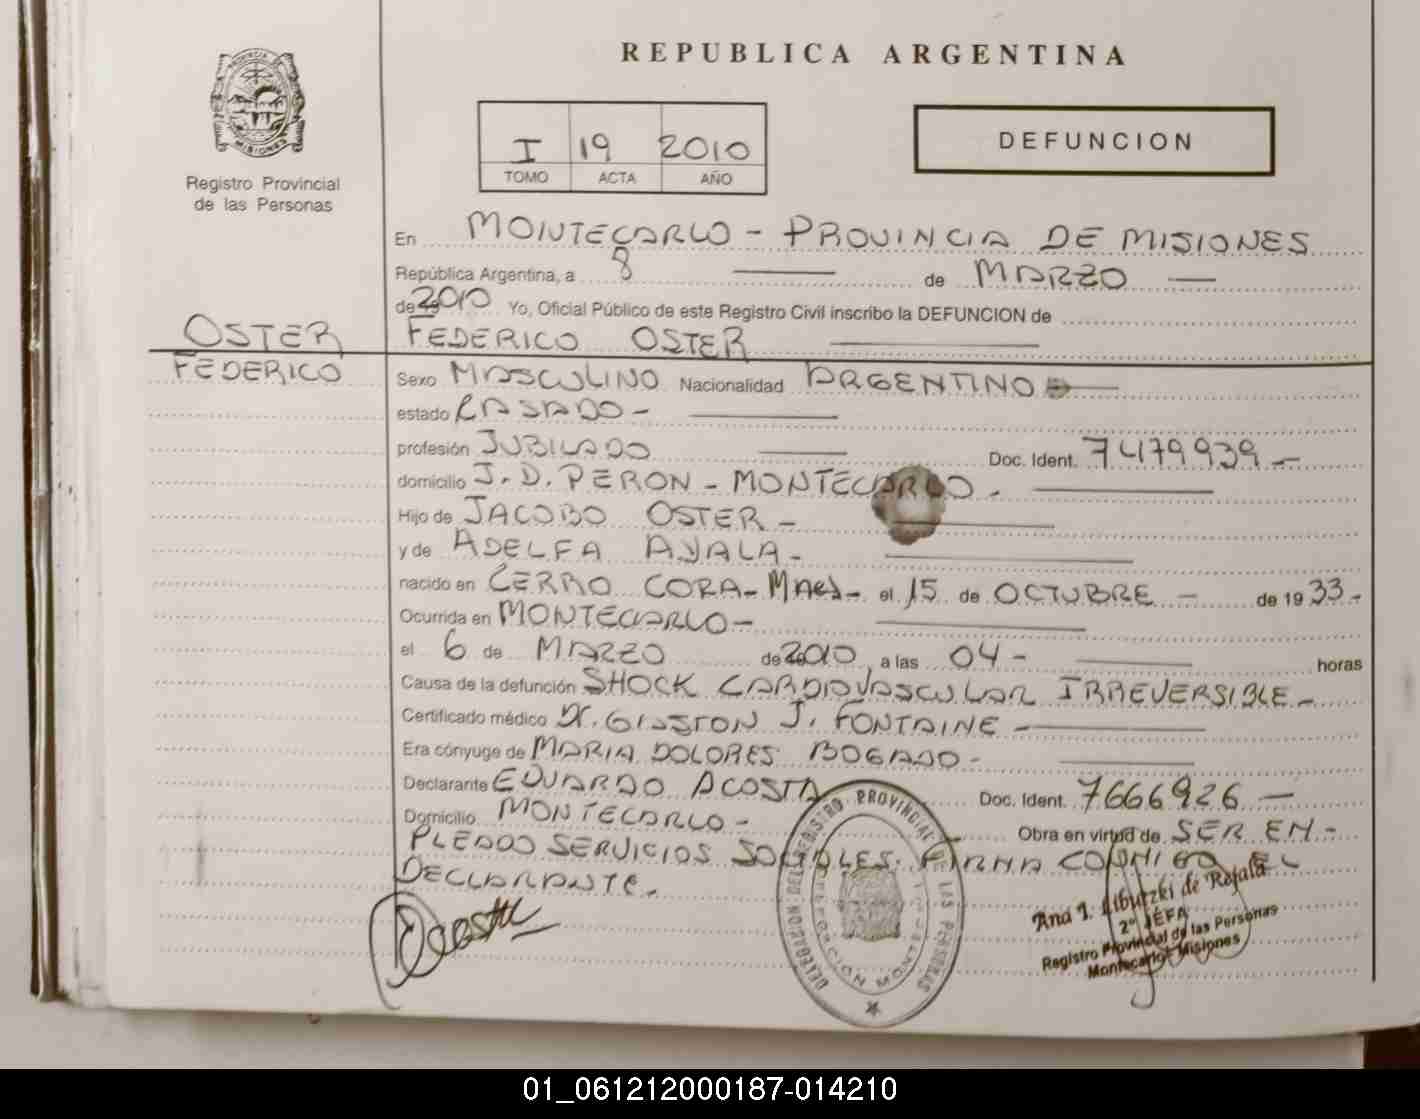 REPUBLICA ARGENTINA
PROVINCIA DE
MISIONES
Registro Provincial
de las Personas
I 19 2010
TOMO ACTA AÑO
DEFUNCION
En MONTECARLO - PROVINCIA DE MISIONES
República Argentina, a 8 de MARZO
de 2010 Yo, Oficial Público de este Registro Civil inscribo la DEFUNCION de
OSTER
FEDERICO
FEDERICO OSTER
Sexo MASCULINO Nacionalidad ARGENTINO
estado CASADO -
profesión JUBILADO Doc. Ident. 7479939 -
domicilio J. D. PERON - MONTECARLO -
Hijo de JACOBO OSTER -
y de ADELFA AYALA -
nacido en CERRO CORA - Mnes - el 15 de OCTUBRE - de 1933 -
Ocurrida en MONTECARLO -
el 6 de MARZO de 2010, a las 04 - horas
Causa de la defunción SHOCK CARDIOVASCULAR IRREVERSIBLE -
Certificado médico Dr. GASTON J. FONTAINE -
Era cónyuge de MARIA DOLORES BOGADO -
Declarante EDUARDO ACOSTA Doc. Ident. 7666926 -
Domicilio MONTECARLO - Obra en virtud de SER EM -
PLEADO SERVICIOS SOCIALES. FIRMA CONMIGO EL
DECLARANTE -
DELEGACION DEL REGISTRO PROVINCIAL DE LAS PERSONAS
Ana I. de Rojala
2º JEFA
Registro Provincial de las Personas
Montecarlo - Misiones
01_061212000187-014210